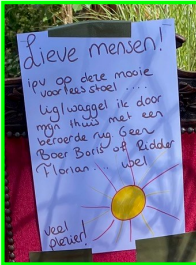 Lieve mensen!
ipv op deze mooie
voorleesstoel ....
lig/waggel ik door
mijn thuis met een
beroerde rug. Geen
Boer Boris of Ridder
Florian... wel
veel
plezier!